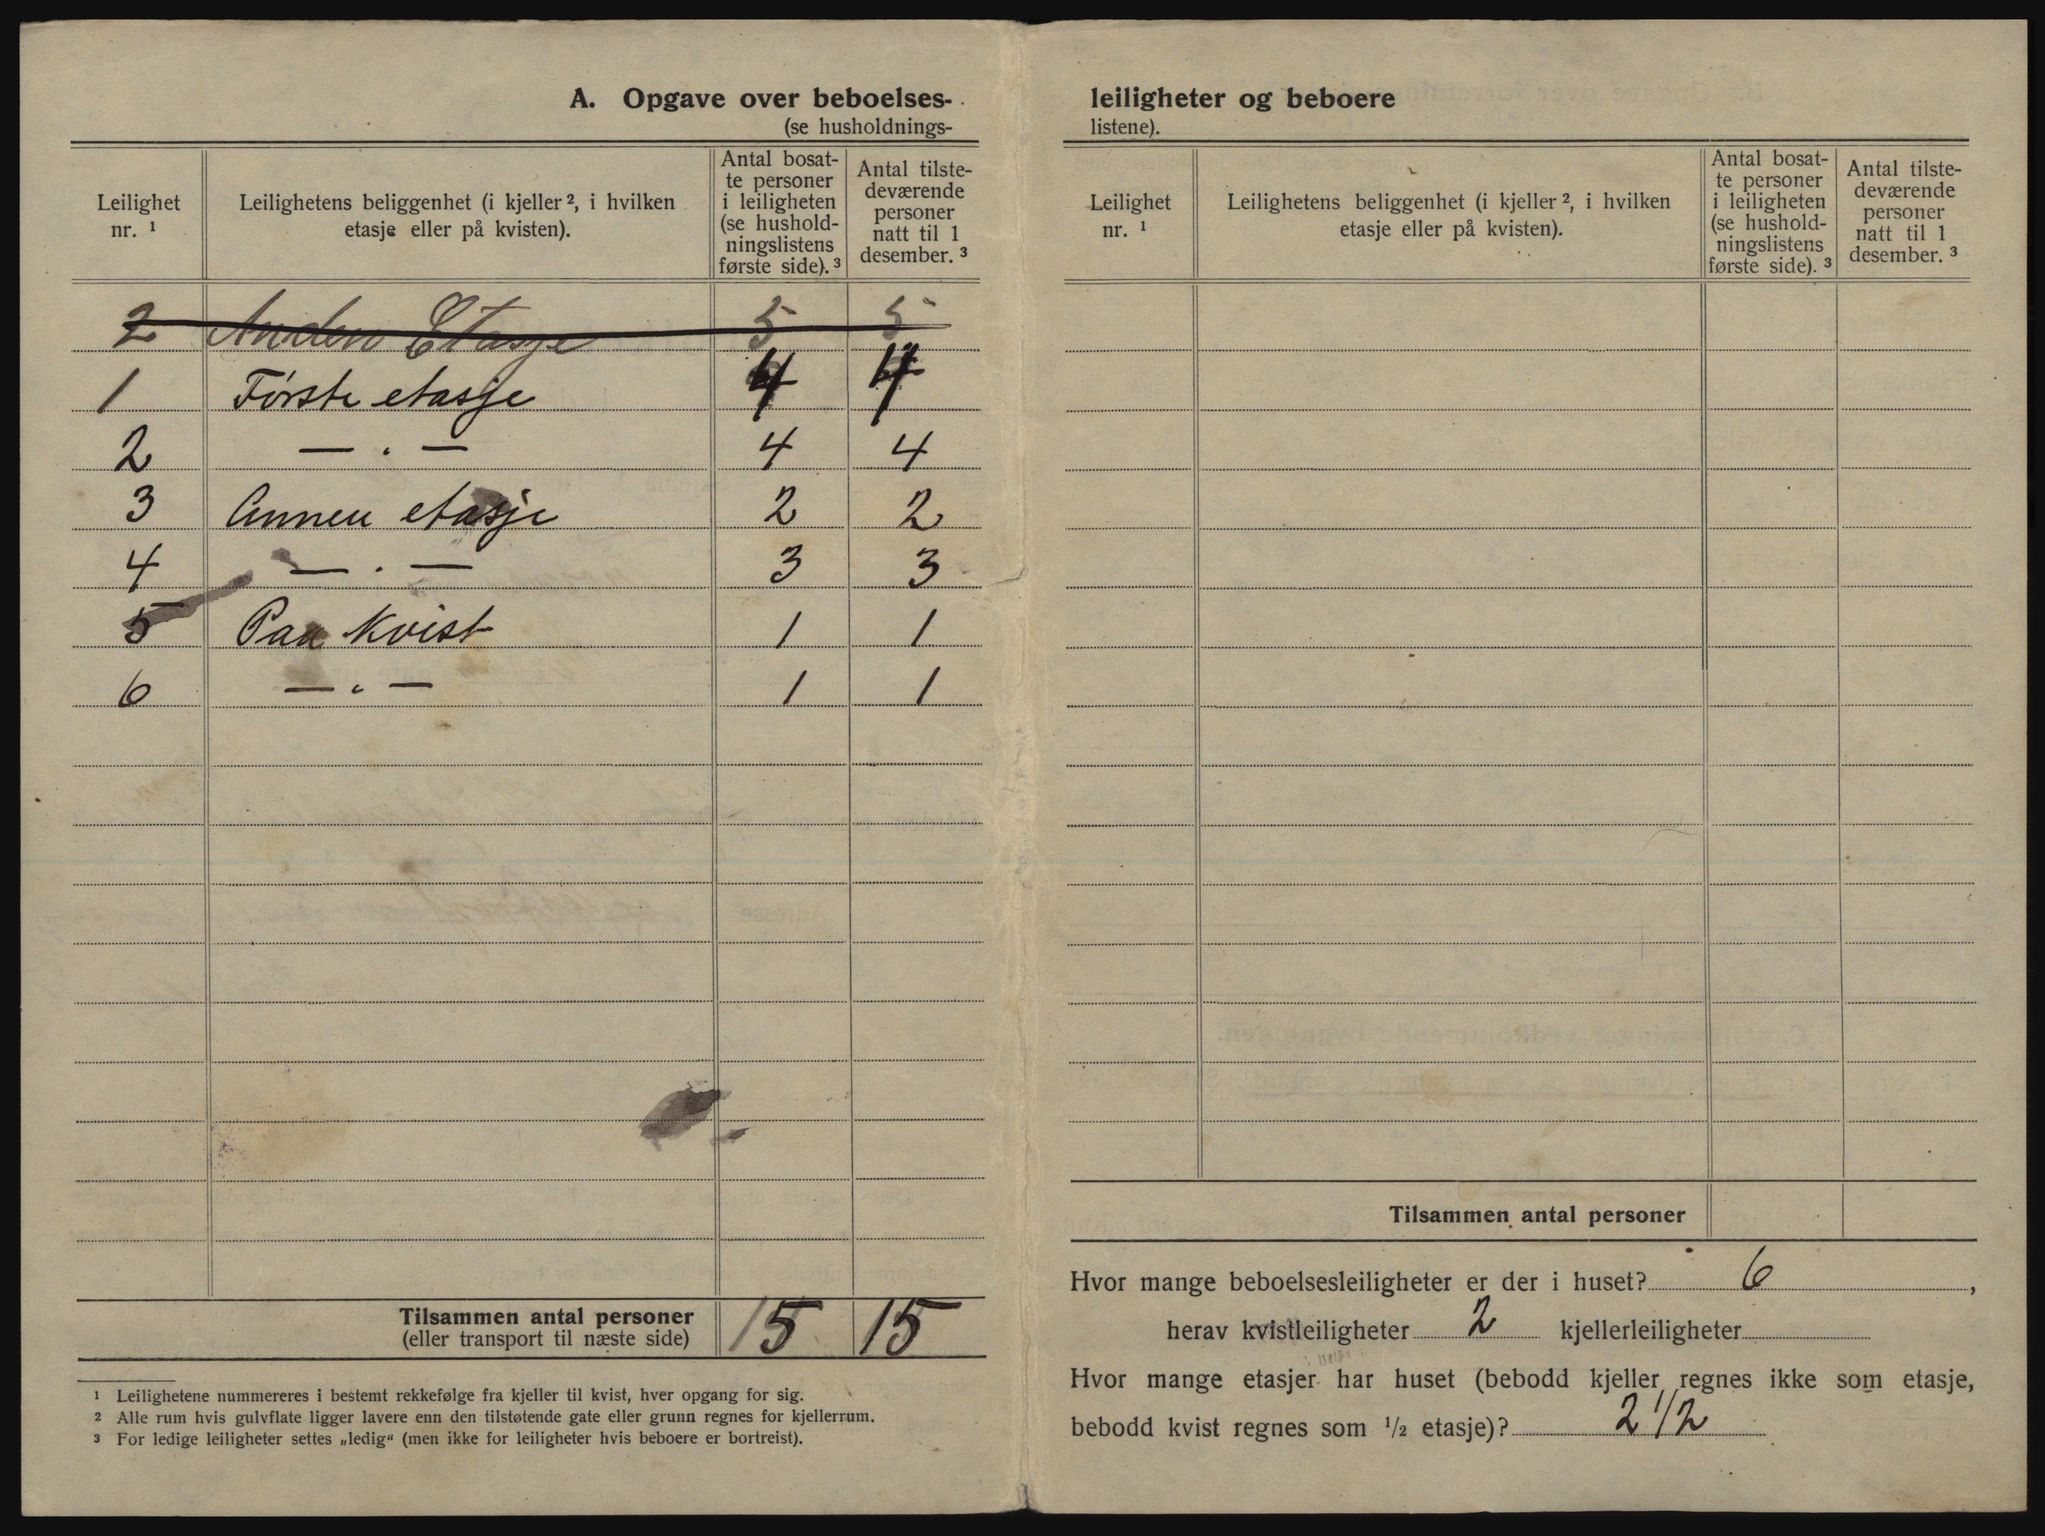 A. Opgave over beboelses- leiligheter og beboere
(se husholdnings- listene).
Leilighet nr. ¹ | Leilighetens beliggenhet (i kjeller ², i hvilken etasje eller på kvisten). | Antal bosatte personer i leiligheten (se husholdningslistens første side). ³ | Antal tilstedeværende personer natt til 1 desember. ³
2 | Anden Etasje | 5 | 5
1 | Første etasje | 4 | 4
2 | — . — | 4 | 4
3 | Annen etasje | 2 | 2
4 | — . — | 3 | 3
5 | Paa Kvist | 1 | 1
6 | — " — | 1 | 1
Tilsammen antal personer
(eller transport til næste side) | 15 | 15
¹ Leilighetene nummereres i bestemt rekkefølge fra kjeller til kvist, hver opgang for sig.
² Alle rum hvis gulvflate ligger lavere enn den tilstøtende gate eller grunn regnes for kjellerrum.
³ For ledige leiligheter settes „ledig“ (men ikke for leiligheter hvis beboere er bortreist).
Leilighet nr. ¹ | Leilighetens beliggenhet (i kjeller ², i hvilken etasje eller på kvisten). | Antal bosatte personer i leiligheten (se husholdningslistens første side). ³ | Antal tilstedeværende personer natt til 1 desember. ³
Tilsammen antal personer
Hvor mange beboelsesleiligheter er der i huset? 6 ,
herav kvistleiligheter 2 kjellerleiligheter
Hvor mange etasjer har huset (bebodd kjeller regnes ikke som etasje,
bebodd kvist regnes som ½ etasje)? 2 1/2